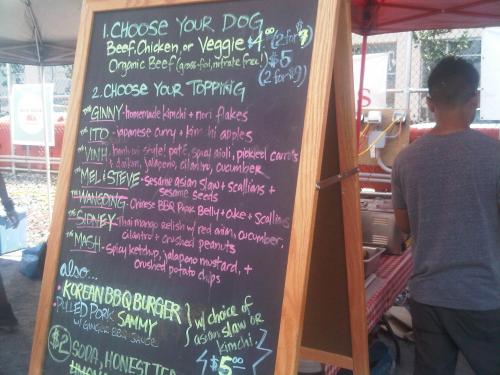 1. CHOOSE YOUR DOG
Beef, Chicken, or Veggie $4.00 (2 for $7)
Organic Beef (grass-fed, nitrate free!) $5 (2 for $9)
2. CHOOSE YOUR TOPPING
THE GINNY - homemade kimchi + nori flakes
THE ITO - japanese curry + kimchi apples
THE VINH - banh mi style! paté, spicy aioli, pickled carrots
+ daikon, jalapeno, cilantro, cucumber
THE MEL + STEVE - sesame asian slaw + scallions +
sesame seeds
THE WANGDING - Chinese BBQ Pork Belly + cuke + Scallions
THE SIDNEY - Thai mango relish w/ red onion, cucumber,
cilantro + crushed peanuts
THE MASH - spicy ketchup, jalapeno mustard, +
crushed potato chips
also...
• KOREAN BBQ BURGER
• PULLED PORK SAMMY
w/ GINGER BBQ SAUCE
w/ choice of
asian slaw or
kimchi!
$5.00
$2 SODA, HONEST TEA